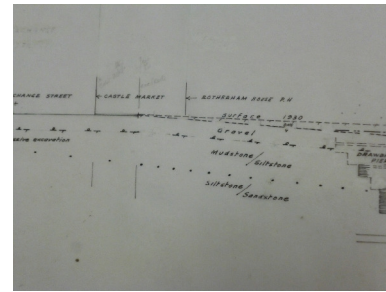 CHANGE STREET
CASTLE MARKET
ROTHERHAM HOUSE P.H
Surface 1930
Gravel
Mudstone/Siltstone
Siltstone/Sandstone